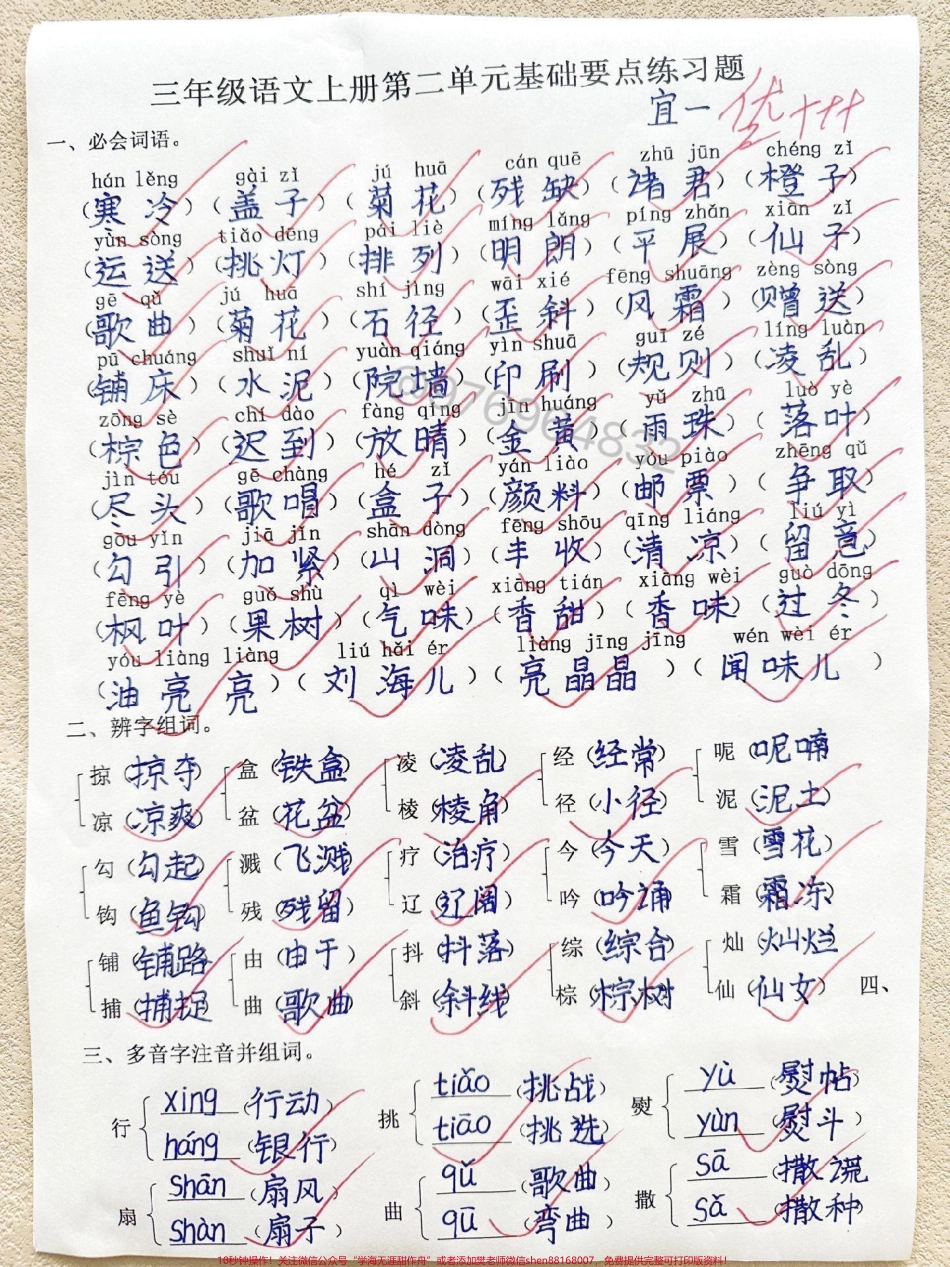 三年级语文上册第二单元基础要点练习题
宜一 优+++
一、必会词语。
hán lěng gài zǐ jú huā cán quē zhū jūn chéng zǐ
(寒冷)(盖子)(菊花)(残缺)(诸君)(橙子)
yùn sòng tiǎo dēng pái liè míng lǎng píng zhǎn xiān zǐ
(运送)(挑灯)(排列)(明朗)(平展)(仙子)
gē qǔ jú huā shí jìng wāi xié fēng shuāng zèng sòng
(歌曲)(菊花)(石径)(歪斜)(风霜)(赠送)
pū chuáng shuǐ ní yuàn qiáng yìn shuā guī zé líng luàn
(铺床)(水泥)(院墙)(印刷)(规则)(凌乱)
zōng sè chí dào fàng qíng jīn huáng yǔ zhū luò yè
(棕色)(迟到)(放晴)(金黄)(雨珠)(落叶)
jìn tóu gē chàng hé zǐ yán liào yóu piào zhēng qǔ
(尽头)(歌唱)(盒子)(颜料)(邮票)(争取)
gōu yǐn jiā jǐn shān dòng fēng shōu qīng liáng liú yì
(勾引)(加紧)(山洞)(丰收)(清凉)(留意)
fēng yè guǒ shù qì wèi xiāng tián xiāng wèi guò dōng
(枫叶)(果树)(气味)(香甜)(香味)(过冬)
yóu liàng liàng liú hǎi ér liàng jīng jīng wén wèi ér
(油亮亮)(刘海儿)(亮晶晶)(闻味儿)
二、辨字组词。
掠(掠夺) 盒(铁盒) 凌(凌乱) 经(经常) 呢(呢喃)
凉(凉爽) 盆(花盆) 棱(棱角) 径(小径) 泥(泥土)
勾(勾起) 溅(飞溅) 疗(治疗) 今(今天) 雪(雪花)
钩(鱼钩) 残(残留) 辽(辽阔) 吟(吟诵) 霜(霜冻)
铺(铺路) 由(由于) 抖(抖落) 综(综合) 灿(灿烂)
捕(捕捉) 曲(歌曲) 斜(斜线) 棕(棕树) 仙(仙女) 四、
三、多音字注音并组词。
行 xíng(行动) 挑 tiǎo(挑战) 熨 yù(熨帖)
háng(银行) tiāo(挑选) yùn(熨斗)
扇 shān(扇风) 曲 qǔ(歌曲) 撒 sā(撒谎)
shàn(扇子) qū(弯曲) sǎ(撒种)
@976964832
10秒钟操作！关注微信公众号“学海无涯甜作舟”或者添加樊老师微信shen88168007，免费提供完整可打印版资料！